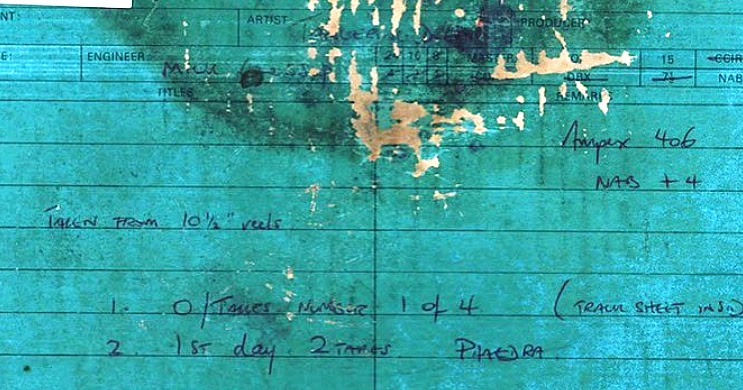 NT: ARTIST PRODUCER
E: ENGINEER 24 16 8 MASTER 15 CCIR
Mick DBX 7½ NAB
TITLES REMARKS
Ampex 406
NAB + 4
TAKEN FROM 10½" reels
1. O/TAKES NUMBER 1 of 4 (TRACK SHEET
2. 1ST day 2 TAKES PHAEDRA.